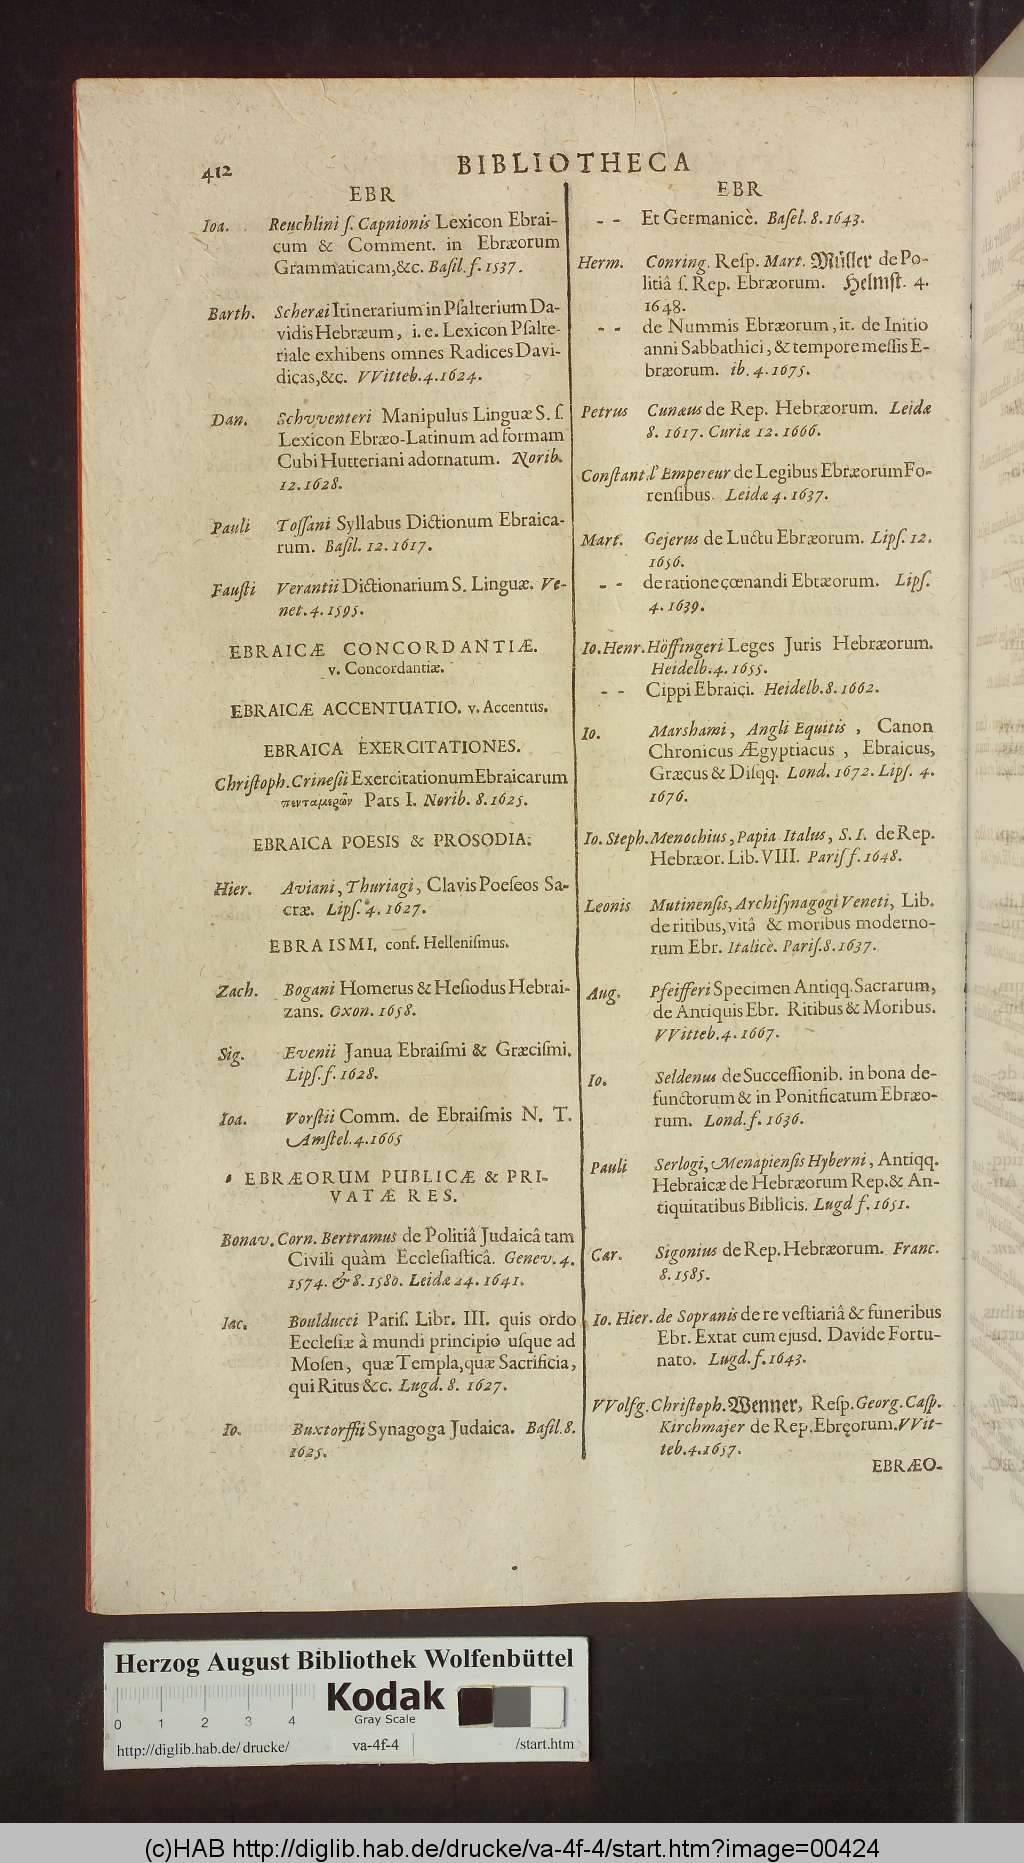 412
BIBLIOTHECA
EBR
Ioa. Reuchlini ſ. Capnionis Lexicon Ebrai-
cum & Comment. in Ebræorum
Grammaticam,&c. Baſil. f. 1537.
Barth. Scheræi Itinerarium in Pſalterium Da-
vidis Hebræum, i. e. Lexicon Pſalte-
riale exhibens omnes Radices Davi-
dicas,&c. VVitteb. 4. 1624.
Dan. Schvventeri Manipulus Linguæ S. ſ.
Lexicon Ebræo-Latinum ad formam
Cubi Hutteriani adornatum. Norib.
12. 1628.
Pauli Toſſani Syllabus Dictionum Ebraica-
rum. Baſil. 12. 1617.
Fauſti Verantii Dictionarium S. Linguæ. Ve-
net. 4. 1595.
EBRAICÆ CONCORDANTIÆ.
v. Concordantiæ.
EBRAICÆ ACCENTUATIO. v. Accentus.
EBRAICA EXERCITATIONES.
Chriſtoph. Crineſii Exercitationum Ebraicarum
πενταμερῶν Pars I. Norib. 8. 1625.
EBRAICA POESIS & PROSODIA.
Hier. Aviani, Thuriagi, Clavis Poeſeos Sa-
cræ. Lipſ. 4. 1627.
EBRAISMI. conf. Helleniſmus.
Zach. Bogani Homerus & Heſiodus Hebrai-
zans. Oxon. 1658.
Sig. Evenii Janua Ebraiſmi & Græciſmi.
Lipſ. f. 1628.
Ioa. Vorſtii Comm. de Ebraiſmis N. T.
Amſtel. 4. 1665
EBRÆORUM PUBLICÆ & PRI-
VATÆ RES.
Bonav. Corn. Bertramus de Politiâ Judaicâ tam
Civili quàm Eccleſiaſticâ. Genev. 4.
1574. & 8. 1580. Leidæ 24. 1641.
Iac. Boulducci Pariſ. Libr. III. quis ordo
Eccleſiæ à mundi principio uſque ad
Moſen, quæ Templa, quæ Sacrificia,
qui Ritus &c. Lugd. 8. 1627.
Io. Buxtorffii Synagoga Judaica. Baſil. 8.
1625.
EBR
- - Et Germanicè. Baſel. 8. 1643.
Herm. Conring. Reſp. Mart. Müller de Po-
litiâ ſ. Rep. Ebræorum. Helmſt. 4.
1648.
- - de Nummis Ebræorum, it. de Initio
anni Sabbathici, & tempore meſſis E-
bræorum. ib. 4. 1675.
Petrus Cunæus de Rep. Hebræorum. Leidæ
8. 1617. Curiæ 12. 1666.
Conſtant. l' Empereur de Legibus Ebræorum Fo-
renſibus. Leidæ 4. 1637.
Mart. Gejerus de Luctu Ebræorum. Lipſ. 12.
1656.
- - de ratione cœnandi Ebræorum. Lipſ.
4. 1639.
Io. Henr. Höffingeri Leges Juris Hebræorum.
Heidelb. 4. 1655.
- - Cippi Ebraici. Heidelb. 8. 1662.
Io. Marshami, Angli Equitis, Canon
Chronicus Ægyptiacus, Ebraicus,
Græcus & Diſqq. Lond. 1672. Lipſ. 4.
1676.
Io. Steph. Menochius, Papia Italus, S. I. de Rep.
Hebræor. Lib. VIII. Pariſ f. 1648.
Leonis Mutinenſis, Archiſynagogi Veneti, Lib.
de ritibus, vitâ & moribus moderno-
rum Ebr. Italicè. Pariſ. 8. 1637.
Aug. Pfeifferi Specimen Antiqq. Sacrarum,
de Antiquis Ebr. Ritibus & Moribus.
VVitteb. 4. 1667.
Io. Seldenus de Succeſſionib. in bona de-
functorum & in Ponitficatum Ebræo-
rum. Lond. f. 1636.
Pauli Serlogi, Menapienſis Hyberni, Antiqq.
Hebraicæ de Hebræorum Rep. & An-
tiquitatibus Biblicis. Lugd f. 1651.
Car. Sigonius de Rep. Hebræorum. Franc.
8. 1585.
Io. Hier. de Sopranis de re veſtiariâ & funeribus
Ebr. Extat cum ejusd. Davide Fortu-
nato. Lugd. f. 1643.
VVolfg. Chriſtoph. Wenner, Reſp. Georg. Caſp.
Kirchmajer de Rep. Ebręorum. VVit-
teb. 4. 1657.
EBRÆO-
Herzog August Bibliothek Wolfenbüttel
Kodak
Gray Scale
0 1 2 3 4
http://diglib.hab.de/drucke/ va-4f-4 /start.htm
(c)HAB http://diglib.hab.de/drucke/va-4f-4/start.htm?image=00424